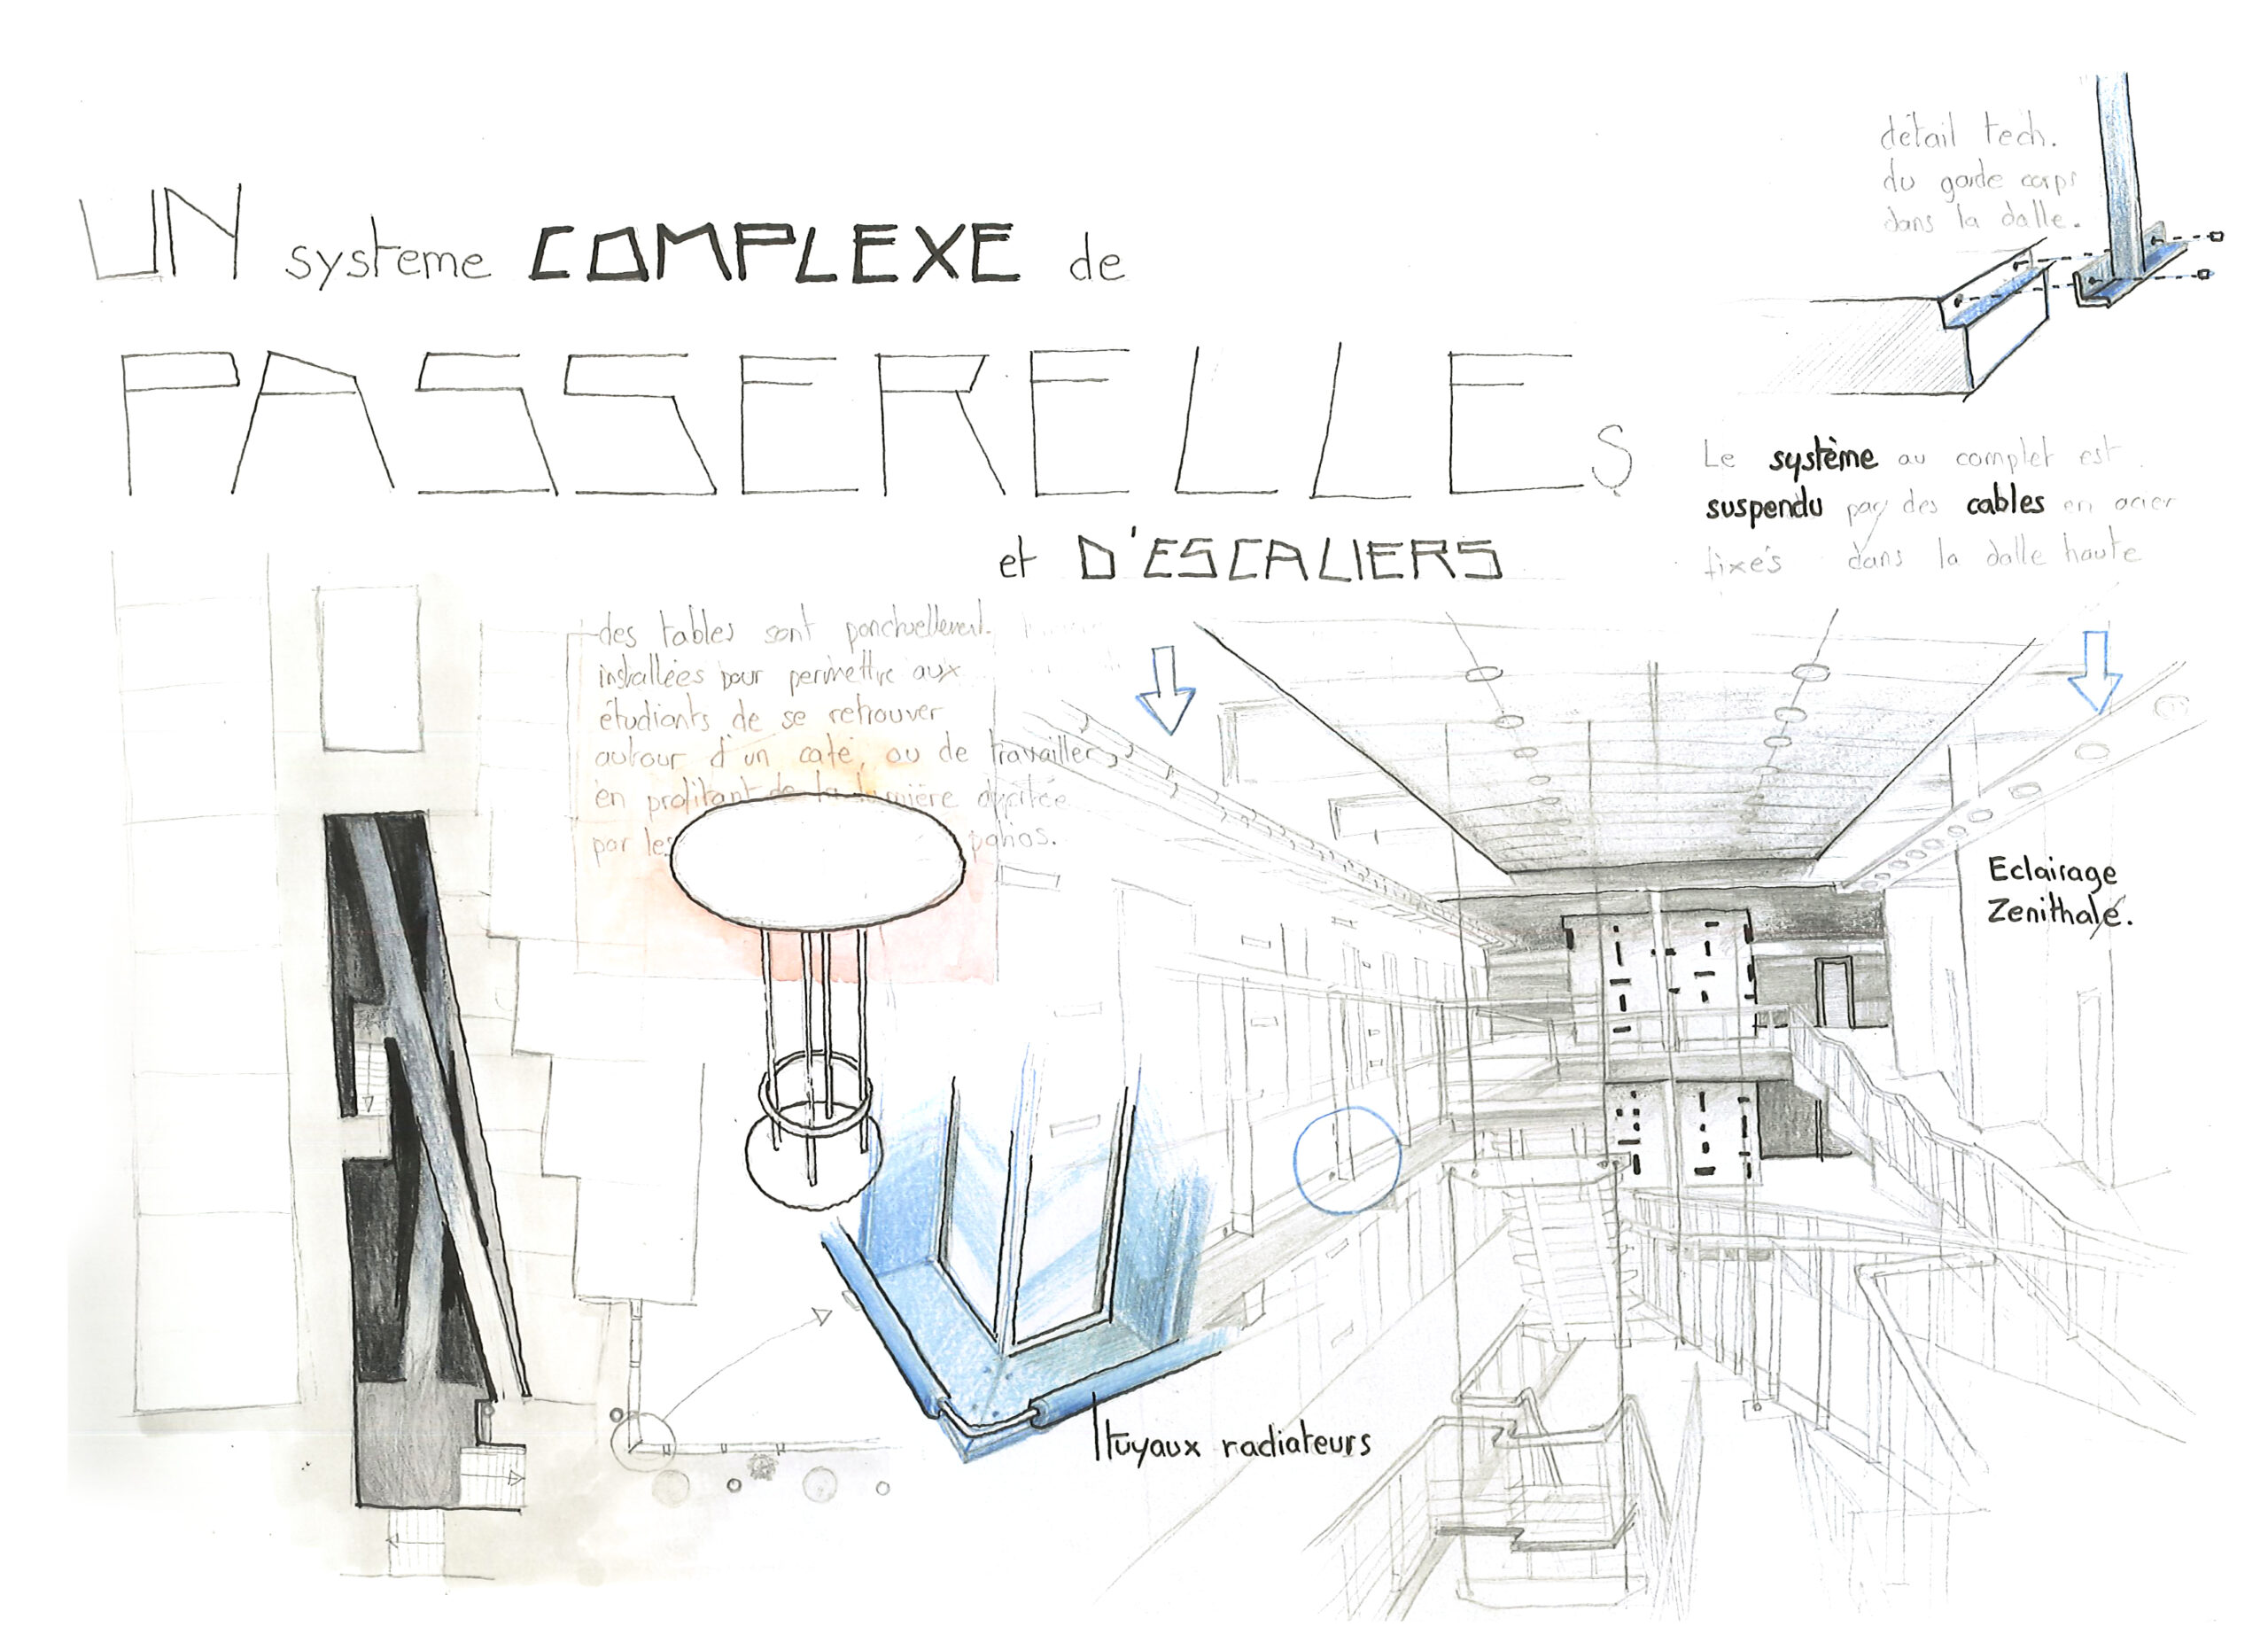 UN systeme COMPLEXE de
PASSERELLES
et D'ESCALIERS
détail tech.
du garde corps
dans la dalle.
Le système au complet est
suspendu par des cables en acier
fixés dans la dalle haute
des tables sont ponctuellement
installées pour permettre aux
étudiants de se retrouver
autour d'un café, ou de travailler,
en profitant de la lumière
par les patios.
Eclairage
Zenithale.
tuyaux radiateurs